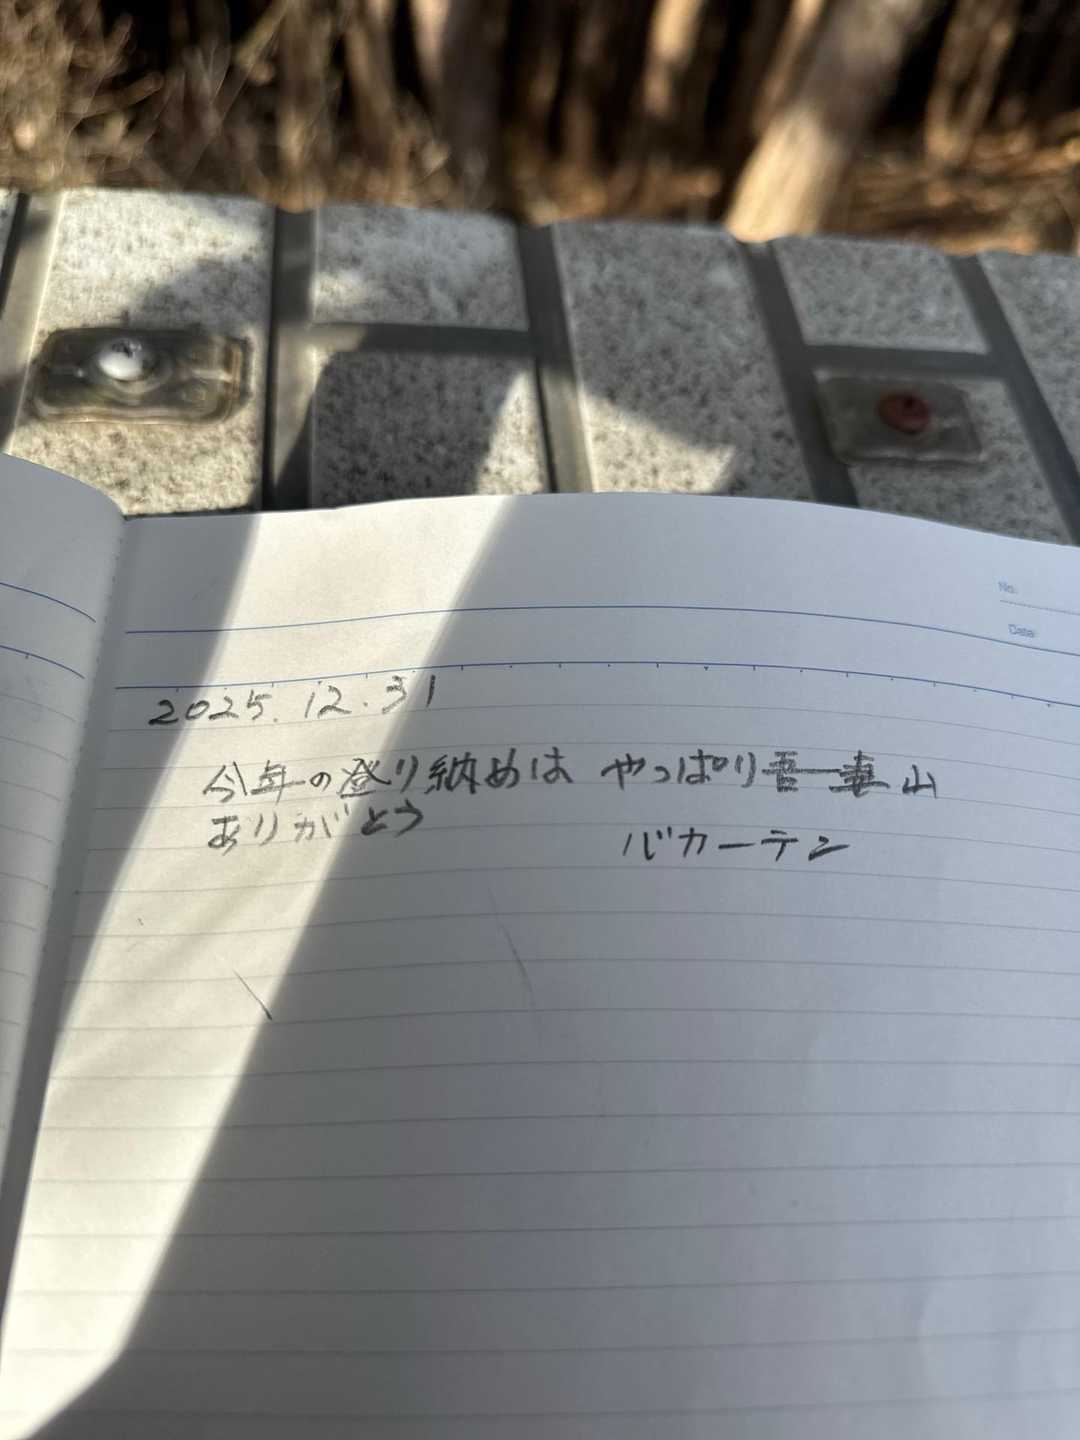 No.
Date
2025.12.31
今年の登り納めは やっぱり吾妻山
ありがとう
バカーテン